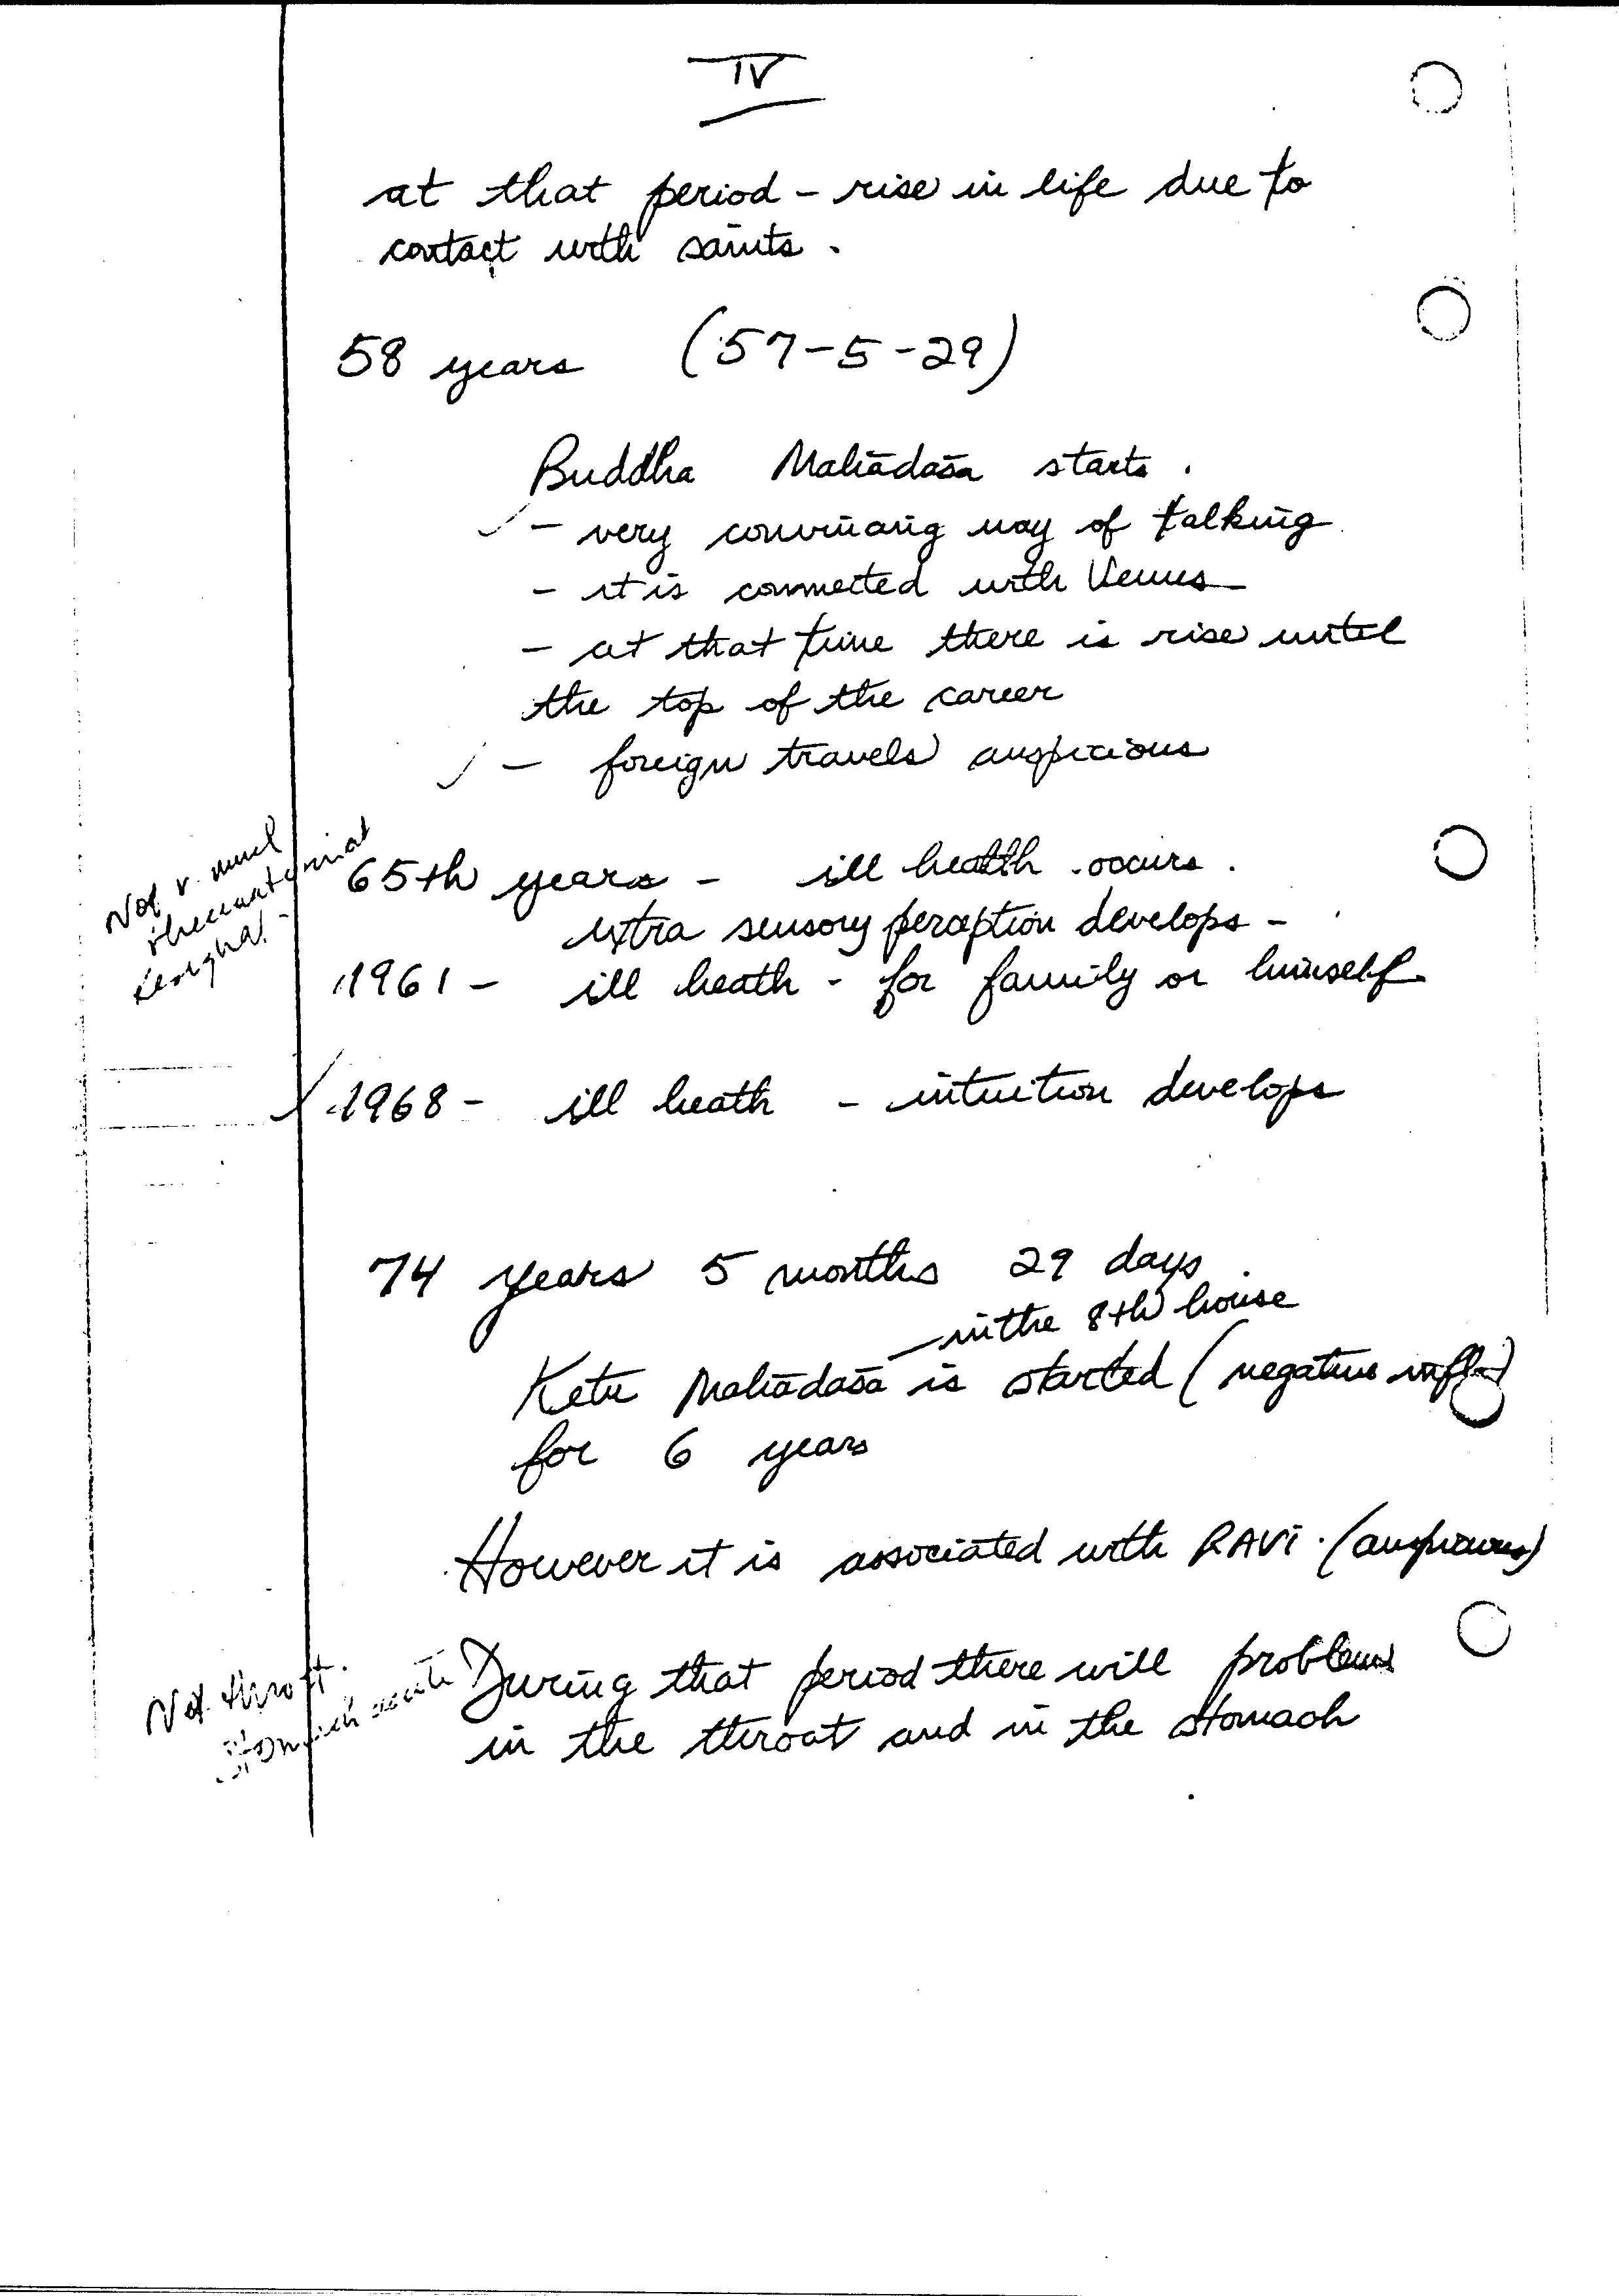 IV
at that period - rise in life due to
contact with saints.
58 years (57-5-29)
Buddha Mahādaśa starts.
- very convincing way of talking
- it is connected with Venus
- at that time there is rise until
the top of the career
- foreign travels auspicious
Not v. much
65th years - ill health occurs.
extra sensory perception develops -
1961 - ill heath - for family or himself
1968 - ill heath - intuition develops
74 years 5 months 29 days.
in the 8th house
Ketu Mahādaśā is started (negative infl)
for 6 years
However it is associated with RAVI. (auspicious)
Not throat.
stomach
During that period there will problems
in the throat and in the stomach